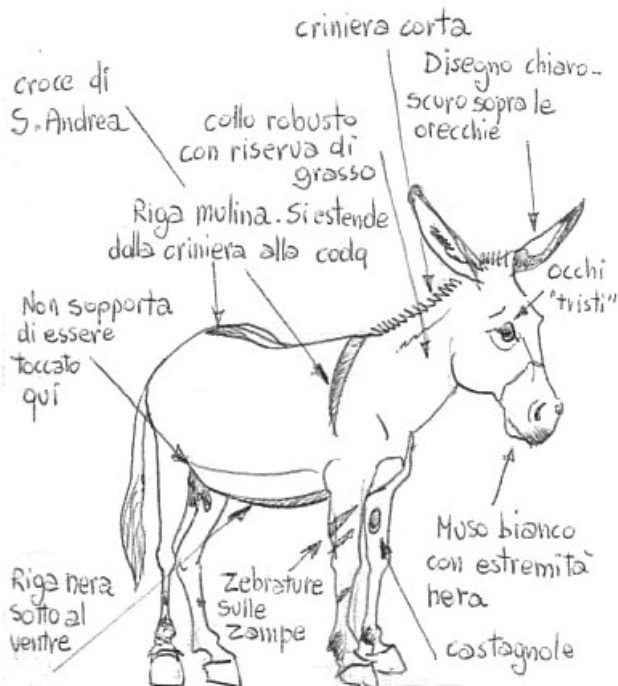 criniera corta
Disegno chiaro-
scuro sopra le
orecchie
croce di
S. Andrea
collo robusto
con riserva di
grasso
Riga mulina. Si estende
dalla criniera alla coda
occhi
"tristi"
Non sopporta
di essere
toccato
qui
Muso bianco
con estremità
nera
Riga nera
sotto al
ventre
Zebrature
sulle
zampe
castagnole